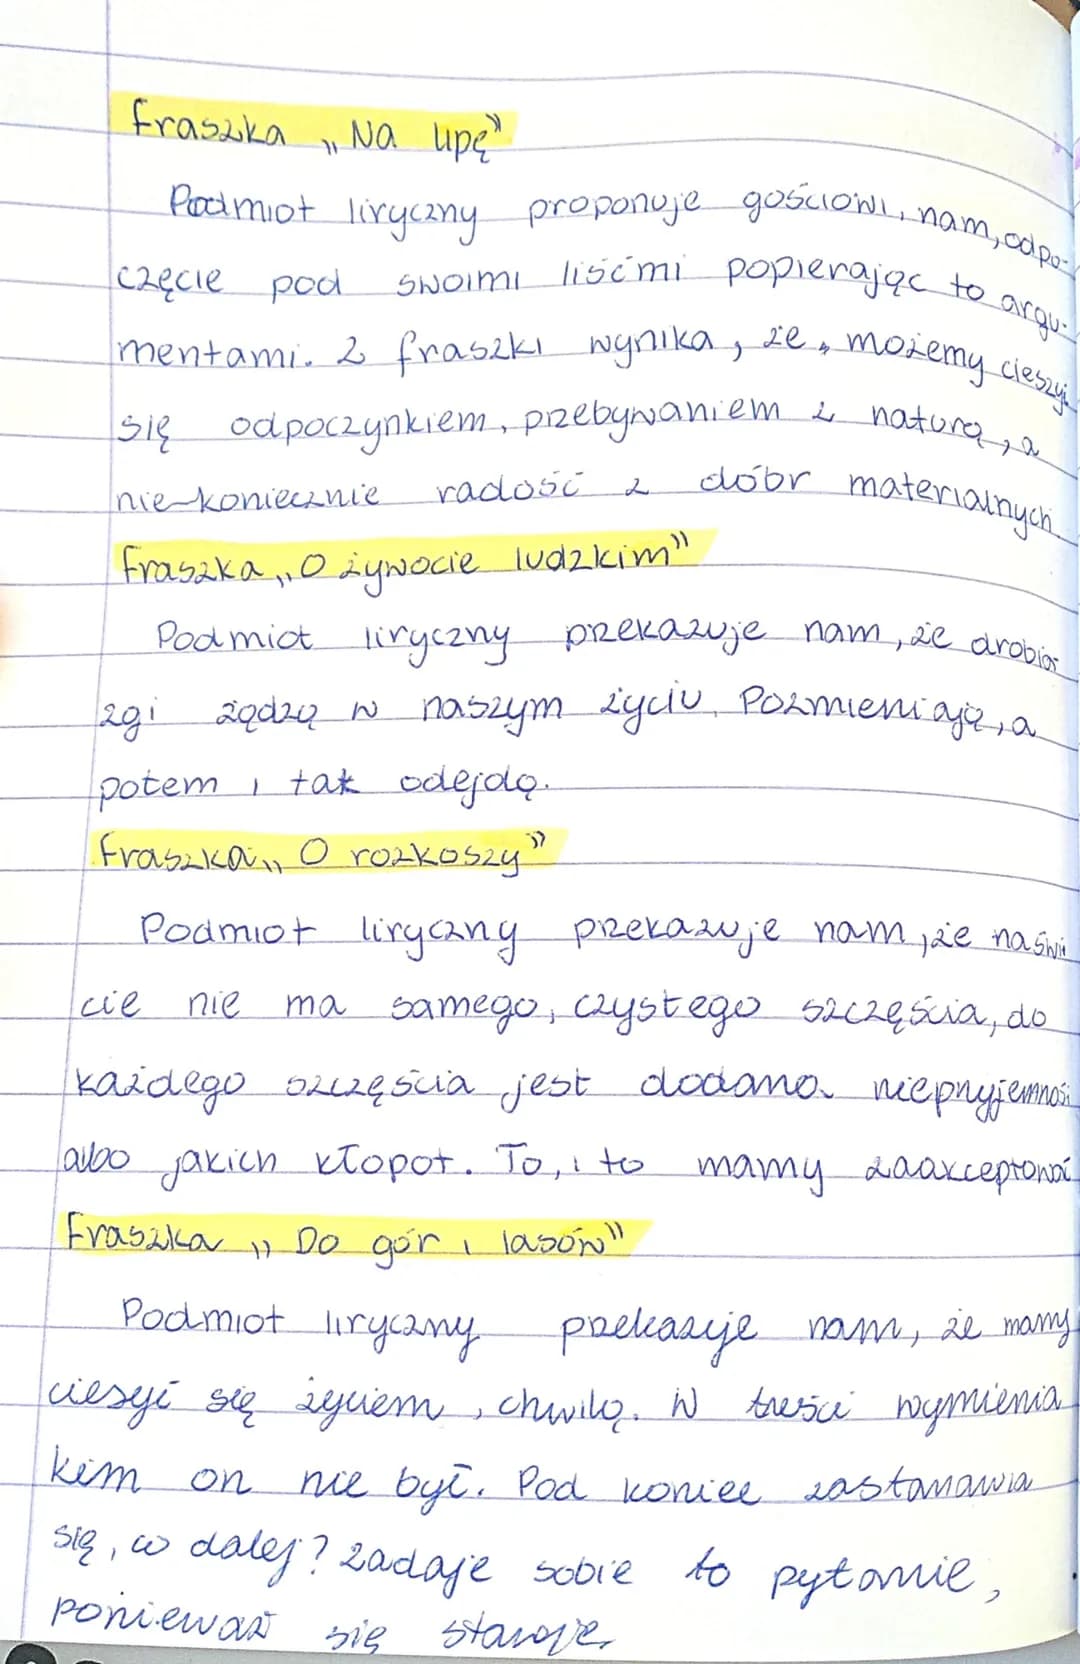 Fraszka „Na lipę"
Podmiot liryczny proponuje gościowi, nam, odpo-
częcie pod swoimi liśćmi popierając to argu-
mentami. Z fraszki wynika, że, możemy cieszyć
się odpoczynkiem, przebywaniem z naturą, a
nie koniecznie radość z dóbr materialnych
Fraszka „O żywocie ludzkim"
Podmiot liryczny przekazuje nam, że drobia
zgi żądzą w naszym życiu. Pozmieniają, a
potem i tak odejdą.
Fraszka „O rozkoszy"
Podmiot liryczny przekazuje nam, że na świ
cie nie ma samego, czystego szczęścia, do
każdego szczęścia jest dodana nieprzyjemnoś
albo jakich kłopot. To, i to mamy zaakceptować
Fraszka „Do gór i lasów"
Podmiot liryczny przekazuje nam, że mamy
ciesyć się życiem, chwilą. W treści wymienia
kim on nie był. Pod koniec zastanawia
się, co dalej? Zadaje sobie to pytanie,
ponieważ się starzeje.